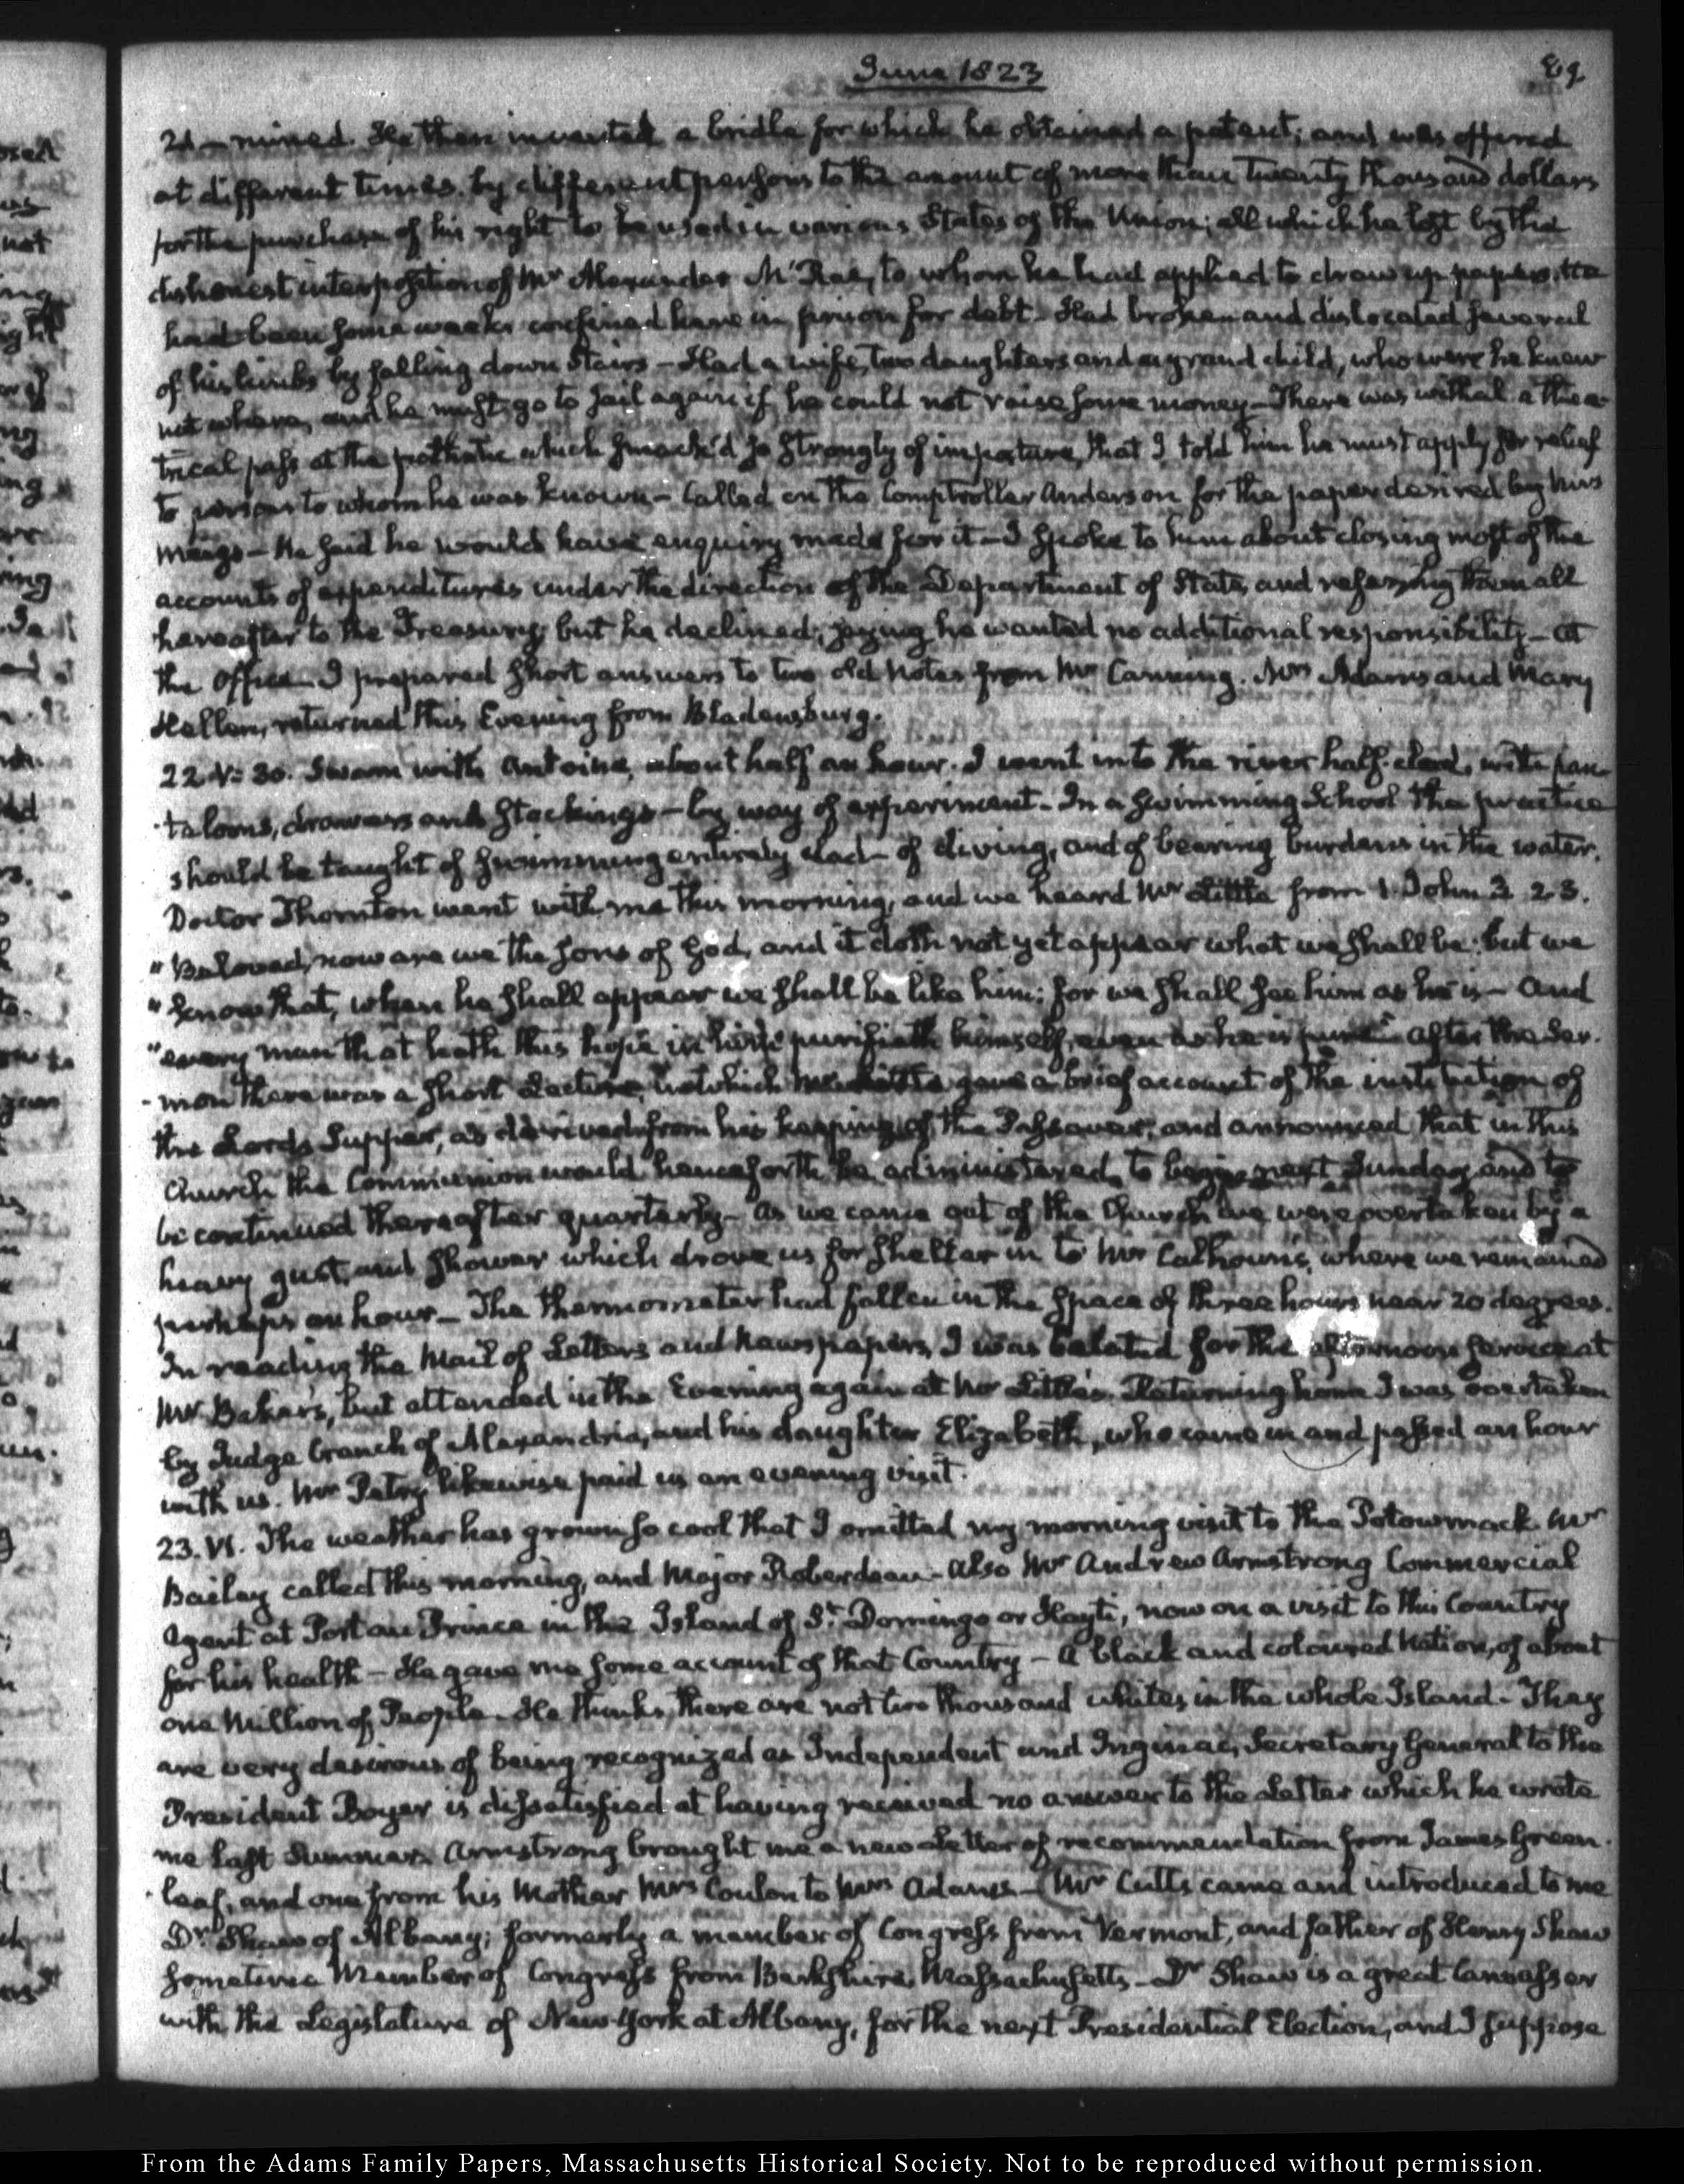 June 1823
89
21— ruined. He then invented a bridle for which he obtained a patent; and was offered
at different times by different persons to the amount of more than twenty thousand dollars
for the purchase of his right to be used in various States of the Union; all which he lost by the
dishonest interposition of Mr Alexander McRae, to whom he had applied to draw up papers. He
had been some weeks confined here in prison for debt— Had broken and dislocated several
of his limbs by falling down stairs— Had a wife, two daughters and a grand child, who were he knew
not where, and he must go to jail again if he could not raise some money— There was withal a thea-
trical pass at the pathetic which smack'd so strongly of imposture, that I told him he must apply for relief
to persons to whom he was known— Called on the Comptroller Anderson for the paper desired by Mrs
Meigs— He said he would have enquiry made for it— I spoke to him about closing most of the
accounts of expenditures under the direction of the Department of State, and referring them all
hereafter to the Treasury; but he declined; saying he wanted no additional responsibility— At
the Office I prepared short answers to two old Notes from Mr Canning. Mrs Adams and Mary
Hellen, returned this Evening from Bladensburg.
22. V:30. Swam with Antoine, about half an hour. I went into the river half-clad, with pan-
-taloons, drawers and stockings— by way of experiment. In a swimming School the practice
should be taught of swimming entirely clad— of diving, and of bearing burdens in the water.
Doctor Thornton went with me this morning, and we heard Mr Little from 1. John 3. 2.3.
"Beloved, now are we the sons of God, and it doth not yet appear what we shall be: but we
"know that, when he shall appear we shall be like him; for we shall see him as he is— And
"every man that hath this hope in him purifieth himself, even as he is pure" after the Ser-
-mon there was a short Lecture, in which Mr Little gave a brief account of the institution of
the Lord's Supper, as derived from his keeping of the Passover; and announced that in this
Church the Communion would henceforth be administered, to begin next Sunday and to
be continued thereafter quarterly— As we came out of the Church we were overtaken by a
heavy gust, and shower which drove us for shelter in to Mr Calhoun's, where we remained
perhaps an hour— The thermometer had fallen in the space of three hours near 20 degrees.
In reading the Mail of Letters and Newspapers, I was belated for the afternoon service at
Mr Baker's, but attended in the Evening again at Mr Little's. Returning home I was overtaken
by Judge Cranch of Alexandria, and his daughter Elizabeth, who came in and passed an hour
with us. Mr Petry likewise paid us an evening visit.
23. VI. The weather has grown so cool that I omitted my morning visit to the Potowmack. Mr
Bailey called this morning, and Major Roberdeau— Also Mr Andrew Armstrong Commercial
Agent at Port au Prince in the Island of St. Domingo or Hayti, now on a visit to this Country
for his health— He gave me some account of that Country— A black and coloured Nation, of about
one Million of People. He thinks there are not two thousand whites in the whole Island— They
are very desirous of being recognized as Independent and Inginac, Secretary General to the
President Boyer is dissatisfied at having received no answer to the Letter which he wrote
me last Summer. Armstrong brought me a new Letter of recommendation from James Green-
-leaf, and one from his Mother Mrs Coulon to Mrs Adams— Mr Cutts came and introduced to me
Dr. Shaw of Albany; formerly a member of Congress from Vermont, and father of Henry Shaw
sometime Member of Congress from Berkshire, Massachusetts— Dr Shaw is a great Canvasser
with the Legislature of New-York at Albany, for the next Presidential Election, and I suppose
From the Adams Family Papers, Massachusetts Historical Society. Not to be reproduced without permission.